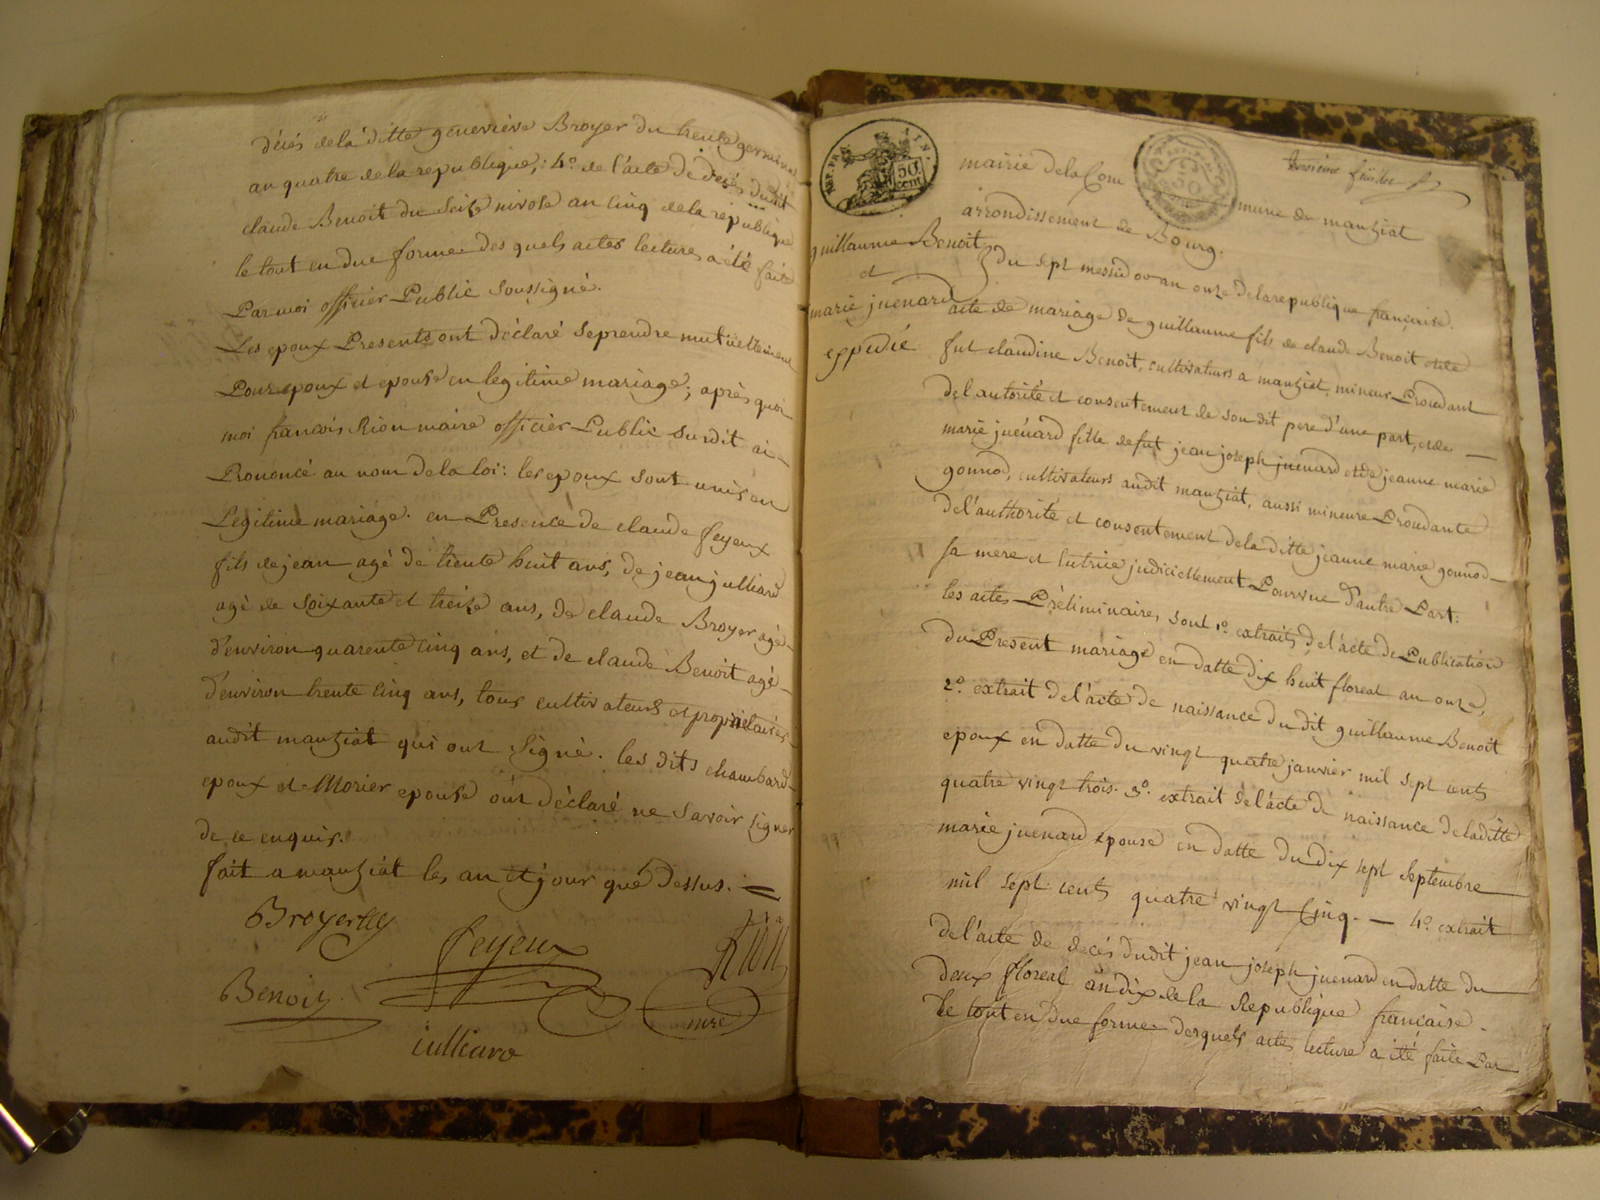 décés de la ditte geneviève Broyer du trente germinal
an quatre de la republique; 4.º de l'acte de décés dudit
claude Benoit du seize nivose an cinq de la republique
le tout en due forme des quels actes lecture a été faite
Par moi officier Public soussigné.
Les epoux Presents ont déclaré se prendre mutuellement
Pour epoux et epouse en legitime mariage; après quoi
moi francois Rion maire officier Public susdit ai
Prononcé au nom de la loi: les epoux sont unis en
Legitime mariage. en Presence de claude feyeux
fils de jean agé de trente huit ans, de jean julliard
agé de soixante et treize ans, de claude Broyer agé
d'environ quarente cinq ans, et de claude Benoit agé
d'environ trente cinq ans, tous cultivateurs et propriétaires
audit manziat qui ont signé. les dits chambard
epoux et Morier epouse ont déclaré ne savoir signer
de ce enquis.
fait a manziat les an et jour que dessus. =
Broyer
feyeux
Rion
Benoit
mre
iulliard
REP. FRA.
50
cent
TIN.
mairie de la Com
mune de manziat
arrondissement de Bourg.
guillaume Benoit
et
marie juenard
expedié
du sept messidor an onze de la republique française.
acte de mariage de guillaume fils de claude Benoit et de
fut claudine Benoit, cultivateurs a manziat, mineur Procédant
de l'autorité et consentement de son dit pere d'une part, et de
marie juénard fille de fut jean joseph juenard et de jeanne marie
gonnod, cultivateurs audit manziat, aussi mineure Procédante
de l'authorité et consentement de la ditte jeanne marie gonnod
sa mere et tutrice judiciellement Pourvue d'autre Part:
les actes Préliminaires sont 1.º extraits de l'acte de Publication
du Present mariage en datte dix huit floreal an onze,
2.º extrait de l'acte de naissance du dit guillaume Benoit
epoux en datte du vingt quatre janvier mil sept cents
quatre vingt trois. 3.º extrait de l'acte de naissance de la ditte
marie juenard epouse en datte du dix sept septembre
mil sept cents quatre vingt cinq. — 4.º extrait
de l'acte de decés dudit jean joseph juenard en datte du
deux floreal an dix de la Republique française.
le tout en due forme desquels actes lecture a été faite Par